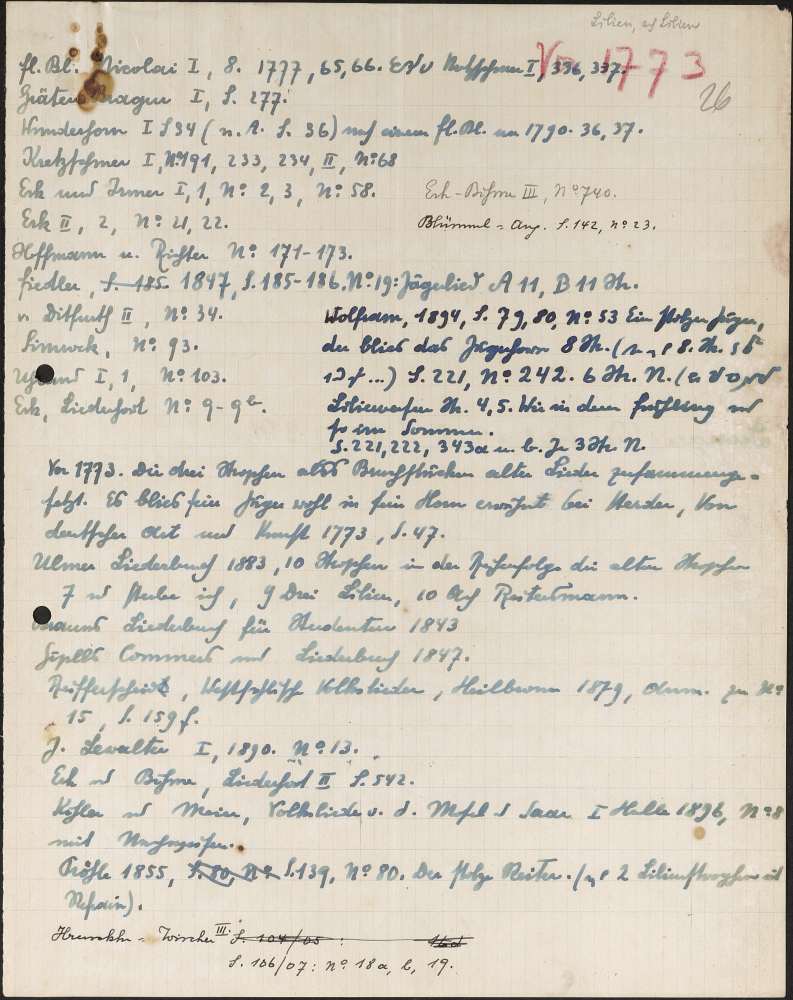 Lilien, ach Lilien
Vor 1773
26
fl. Bl. Nicolai I, S. 1777, 65, 66. Kretzschmer I, 336, 337.
Gräters Bragur I, S. 277.
Wunderhorn I S 34 (n. A. S. 36) nach einem fl. Bl. um 1790. 36, 37.
Kretzschmer I, Nº 191, 233, 234, II, Nº 68
Erk und Irmer I, 1, Nº 2, 3, Nº 58.
Erk-Böhme III, Nº 740.
Erk II, 2, Nº 21, 22.
Blümml = Ang. S. 142, Nº 23.
Hoffmann u. Richter Nº 171-173.
Fiedler, S. 185 1847, S. 185-186. Nº 19: Jägerlied A 11, B 11 Str.
v Ditfurth II, Nº 34.
Simrock, Nº 93.
Uhland I, 1, Nº 103.
Erk, Liederhort Nº 9-9b.
Wolfram, 1894, S. 79, 80, Nº 53 Ein stolzer Jäger,
der blies das Jägerhorn 8 Str. 8. Str.
S. 221, Nº 242. 6 Str. N.
Str. 4, 5. Wie in dem Frühling und
so im Sommer.
S. 221, 222, 343a u. b. Je 3 Str. N.
Vor 1773. Die drei Strophen als Bruchstücken alter Lieder zusammenge=
setzt. Es blies sein Jäger wohl in sein Horn erwähnt bei Herder, Von
deutscher Art und Kunst 1773, S. 47.
Ulmer Liederbuch 1883, 10 Strophen in der Reihenfolge die alten Strophen
7 sterbe ich, 9 Drei Lilien, 10 Ach Reitersmann.
Brauns Liederbuch für Studenten 1843
Commers und Liederbuch 1847.
Reifferscheid, Westfälische Volkslieder, Heilbronn 1879, Anm. zu Nº
15, S. 159 f.
J. Lewalter I, 1890. Nº 13.
Erk und Böhme, Liederhort II S. 542.
Köhler und Meier, Volkslieder v. d. Mosel u Saar I Halle 1896, Nº 8
mit Nachweisen.
Pröhle 1855, S. 80, Nº S. 139, Nº 80. Der stolze Reiter. 2 Lilienstrophen als
Refrain).
Hruschka = Toischer III. S. 104/05: 16d
S. 106/07: Nº 18a, b, 19.